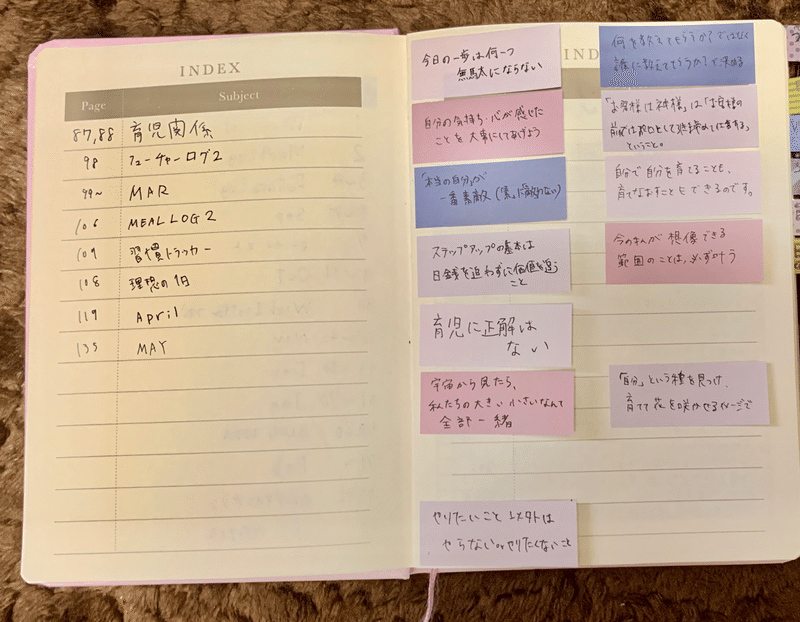 INDEX
Page Subject
87,88 育児関係
98 フューチャーログ2
99~ MAR
106 MEAL LOG 2
109 習慣トラッカー
108 理想の1日
119 April
135 MAY
IND
今日の一歩は何一つ
無駄にならない
自分の気持ち・心が感じた
ことを大事にしてあげよう
「本当の自分」が
一番素敵
ステップアップの基本は
目銭を追わずに価値を追う
こと
育児に正解は
ない
宇宙から見たら、
私たちの大きい小さいなんて
全部一緒
やりたいこと以外は
やらないorやりたくないこと
何を教えてもらうか?ではなく
誰に教えてもらうか?で決める
「お客様は神様」は「お客様の
ということ。
自分で自分を育てることも、
育てなおすこともできるのです。
今の私が想像できる
範囲のことは、必ず叶う
「自分」という種を見つけ、
育てて花を咲かせるイメージで